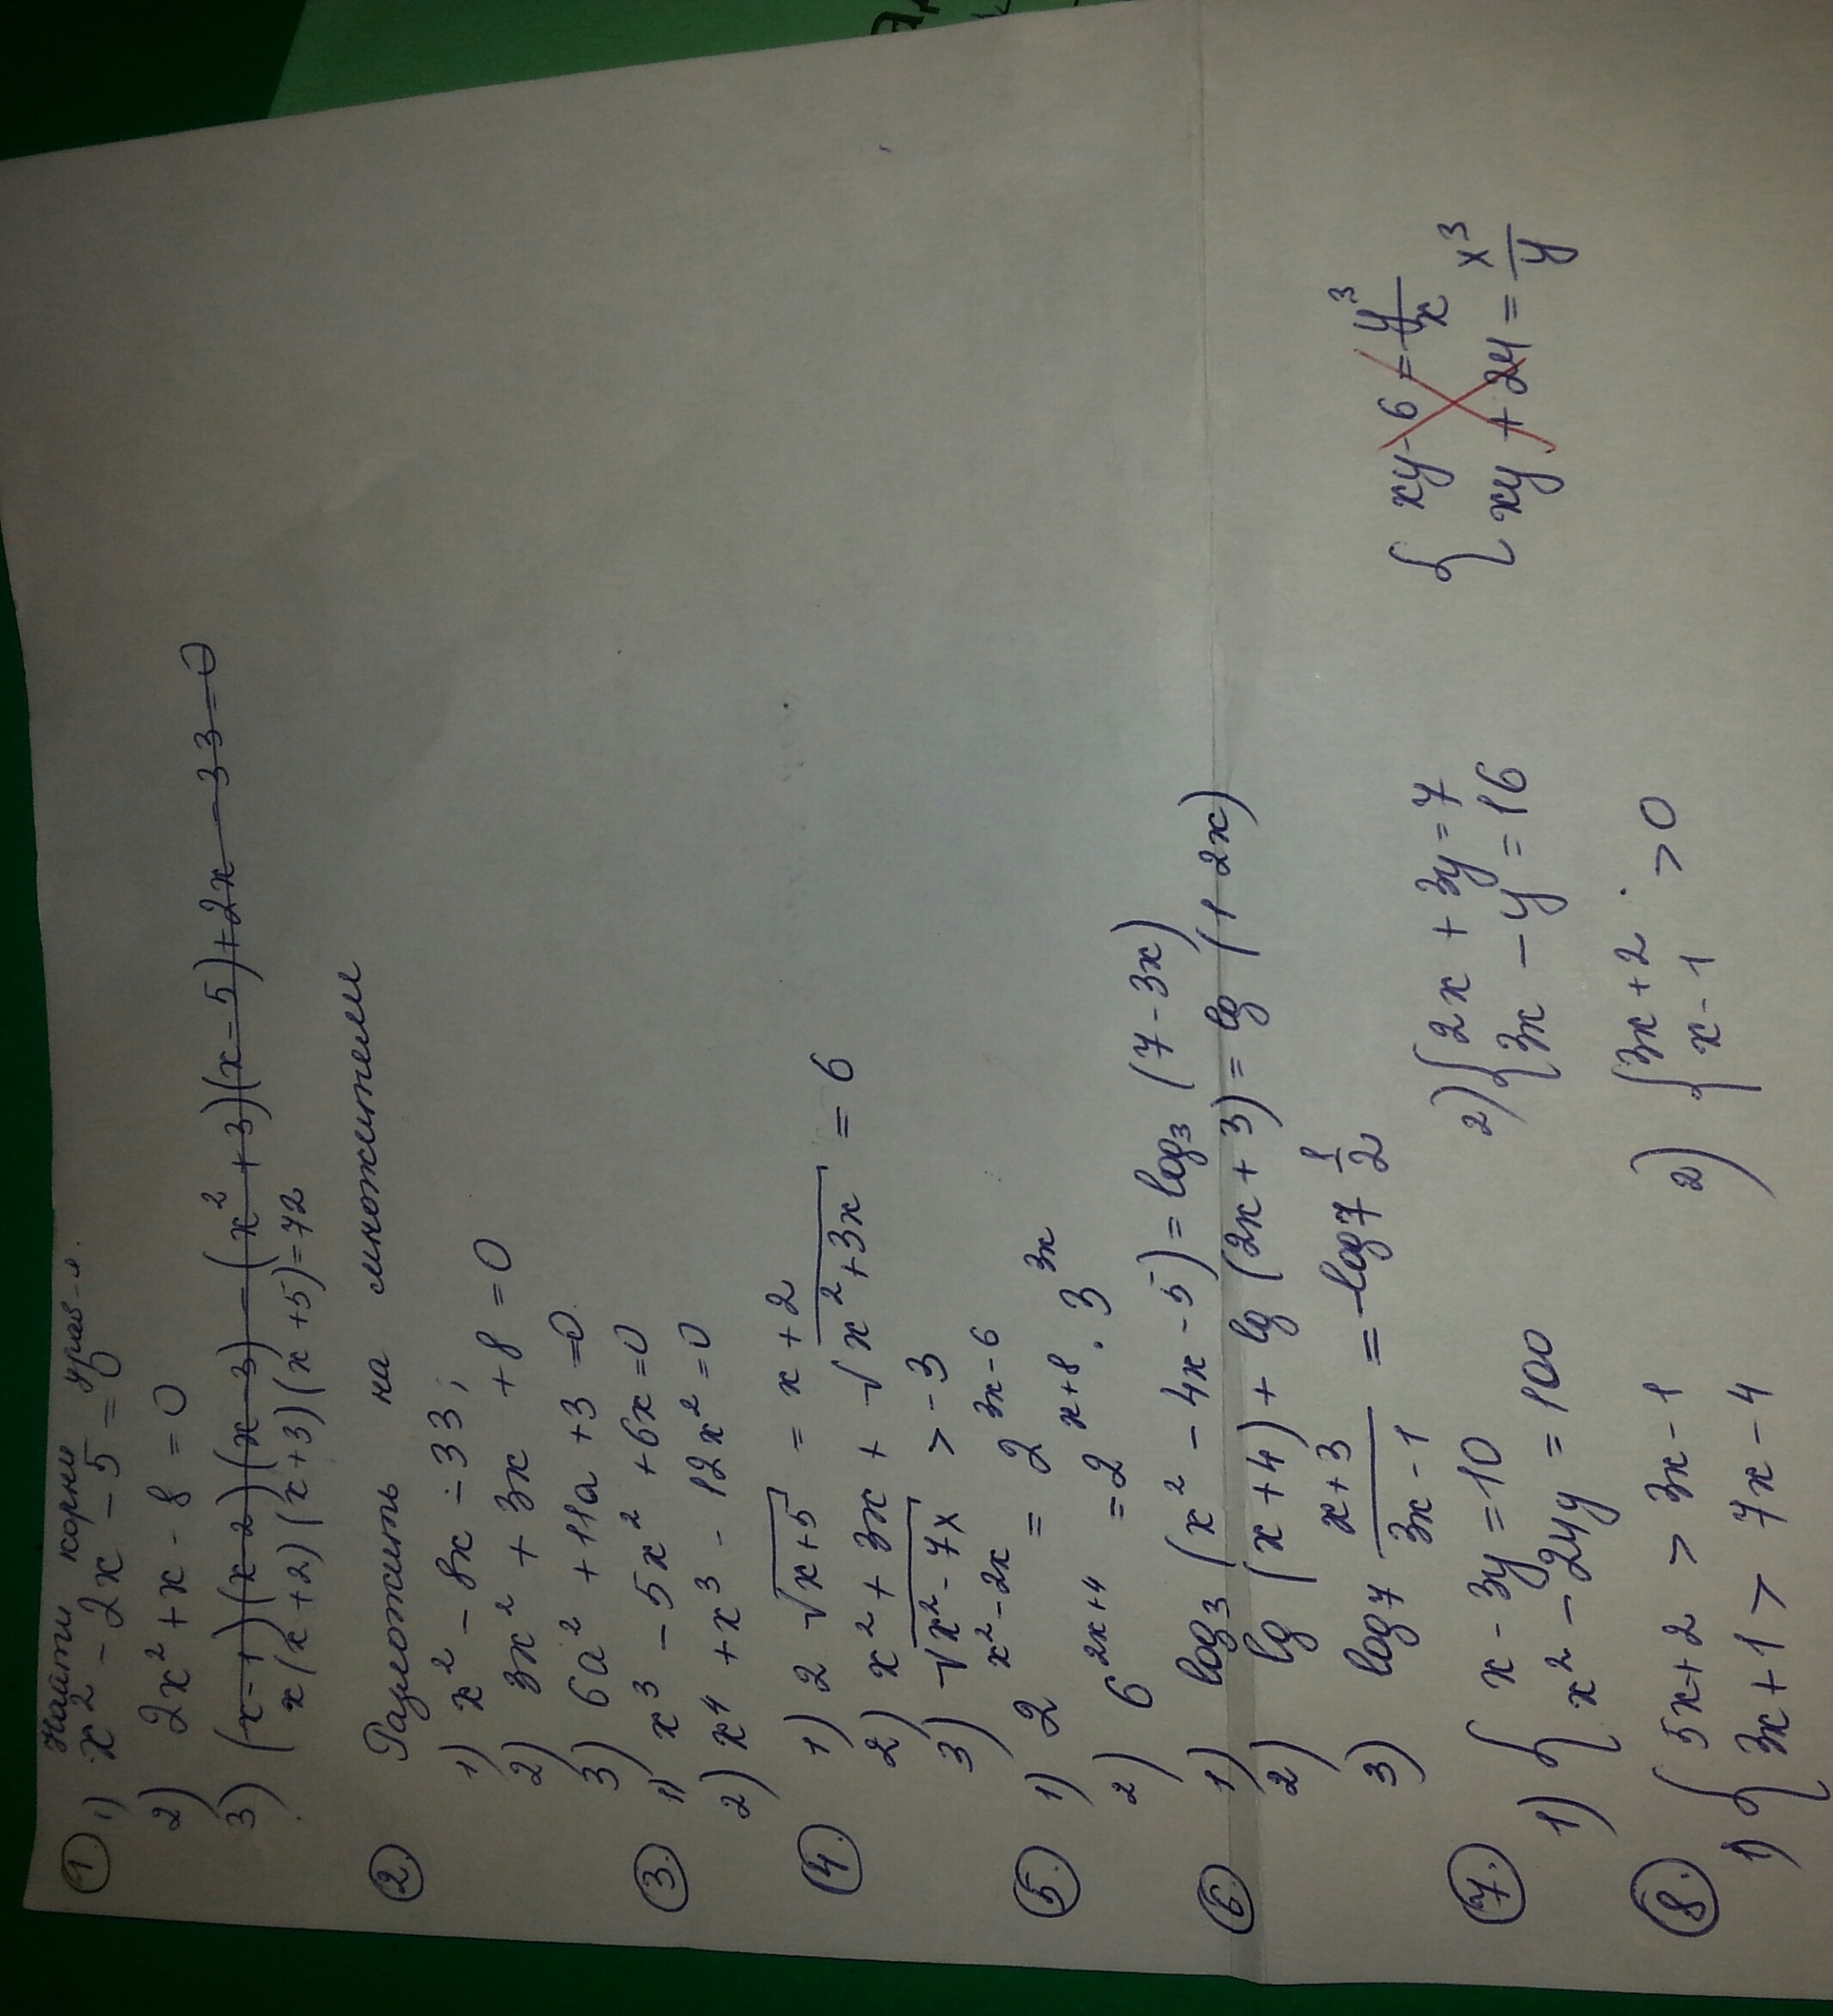 ① Найти корни урав-я.
1) x² - 2x - 5 = 0
2) 2x² + x - 8 = 0
3) (x-1)(x-2)(x-3) - (x²+3)(x-5) + 2x - 33 = 0
x(x+2)(x+3)(x+5)=72
② Разложить на множители
1) x² - 8x - 33;
2) 3x² + 3x + 8 = 0
3) 6a² + 11a + 3 = 0.
③ 1) x³ - 5x² + 6x = 0
2) x⁴ + x³ - 12x² = 0
④ 1) 2√(x+5) = x + 2
2) x² + 3x + √(x² + 3x) = 6
3) √(x² - 7x) > -3
⑤ 1) 2^(x²-2x) = 2^(3x-6)
2) 6^(2x+4) = 2^(x+8) · 3^(3x)
⑥ 1) log₃ (x² - 4x - 5) = log₃ (7 - 3x)
2) lg (x+4) + lg (2x+3) = lg (1 2x)
3) log₇ (x+3)/(3x-1) = log₇ 1/2
⑦ 1) { x - 3y = 10
x² - 24y = 100
2) { 2x + 3y = 7
3x - y = 16
{ xy - 6 = y³/x
xy + 24 = x³/y
⑧ 1) { 5x+2 > 3x-1
3x+1 > 7x-4
2) { 3x+2 > 0
x-1